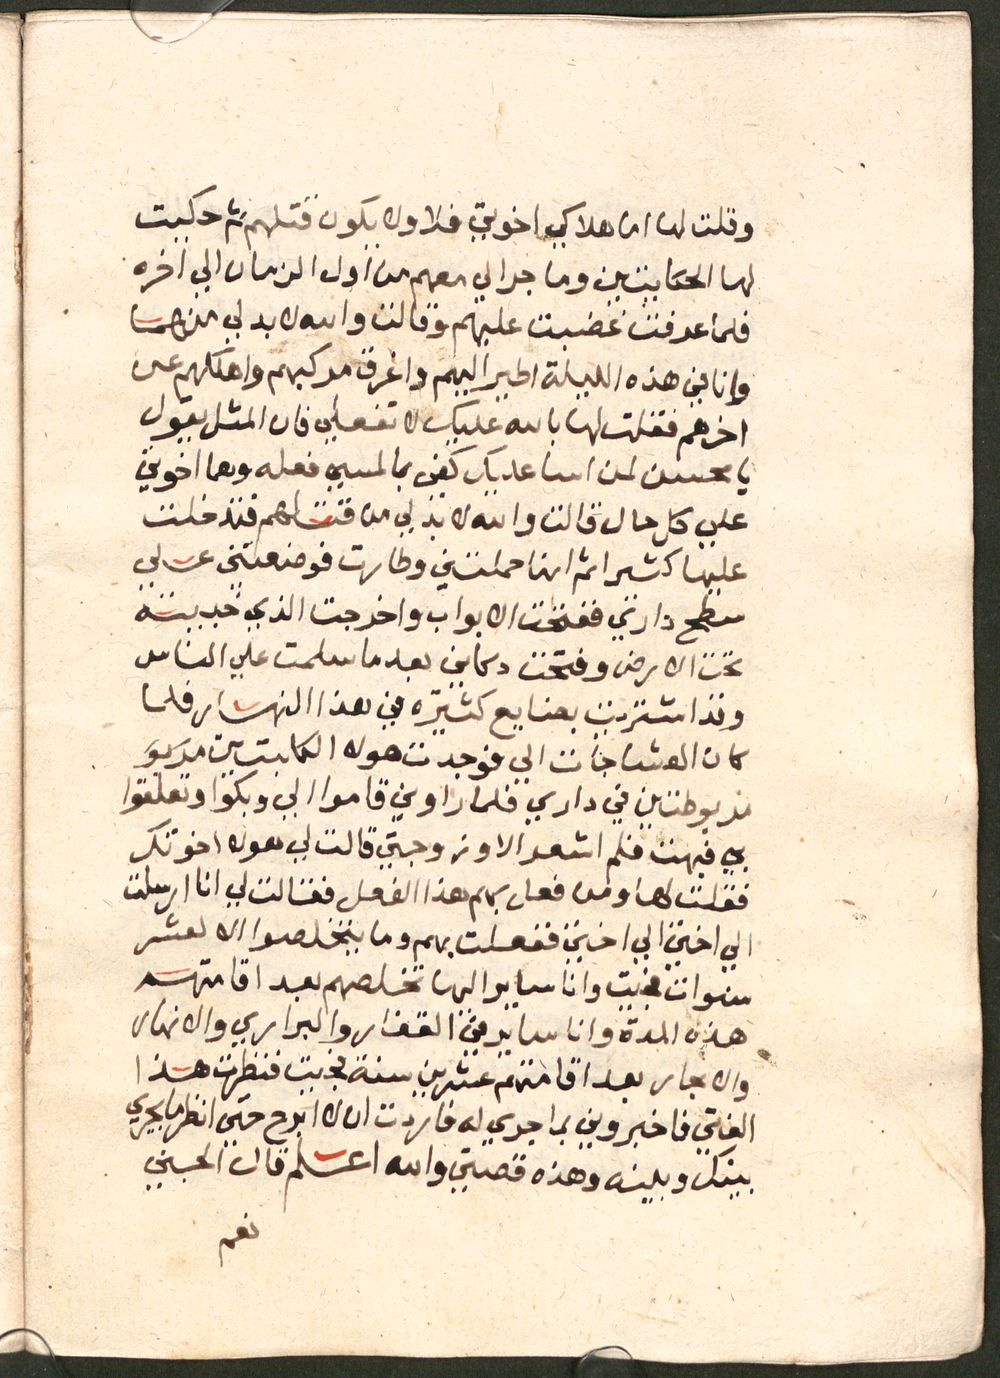 وقلت لها اما هلاكي اخوتي فلا ولا يكون قتلهم ثم حكيت
لها الحكايتين وما جرالي معهم من اول الزمان الي اخره
فلما عرفت غضبت عليهم وقالت والله لا بد لي من همسا
وانا في هذه الليلة اطير اليهم واغرق مركبهم واهلكهم عن
اخرهم فقلت لها بالله عليك لا تفعلي فان المثل يقول
يا محسن لمن اسا عليك كفي بالمسي فعله وهما اخوتي
علي كل حال قالت والله لا بد لي من قتلهم فتدخلت
عليها كثيرا ثم انها حملتني وطارت فوضعتني علي
سطح داري ففتحت الابواب واخرجت الذي خبيته
تحت الارض وفتحت دكاني بعد ما سلمت علي الناس
وقد اشتريت بضايع كثيره في هذا النهار فلما
كان العشا جات الي فوجدت هولا الكلبتين
مربوطتين في داري فلما راوني قاموا الي وبكوا وتعلقوا
بي فبهت فلم اشعر الا وزوجتي قالت لي هولا اخوتك
فقلت لها ومن فعل بهم هذا الفعل فقالت لي انا ارسلت
الي اختي الي اختي ففعلت بهم وما يتخلصوا الا لعشر
سنوات فجيت وانا ساير اليها تخلصهم بعد اقامتهم
هذه المدة وانا ساير في القفار والبراري والانهار
والابحار بعد اقامتهم عشرين سنة فجيت فنظرت هذا
الفتي فاخبروني بما جري له فاردت ان لا ابرح حتي انظر ما يجري
بينك وبينه وهذه قصتي والله اعلم قال الجني
نعم